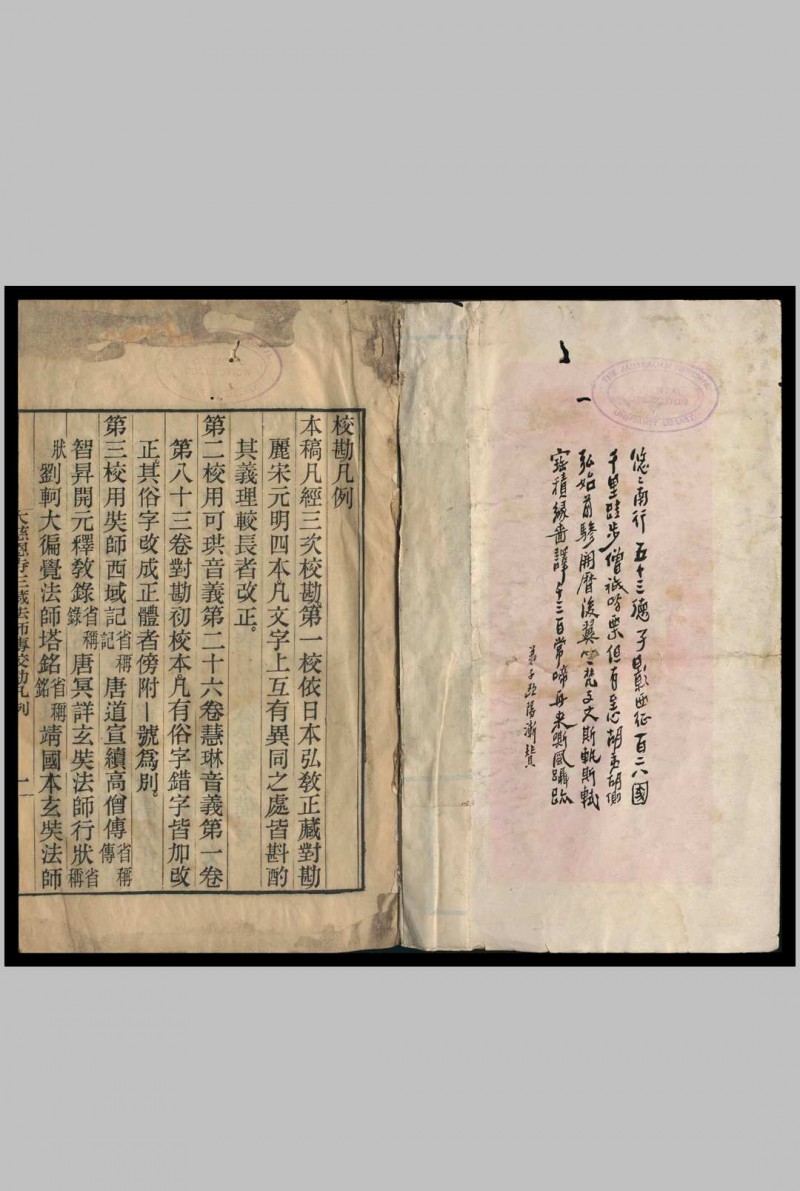 悠々南行 五十三德 予彰西征 百二八國
千里跬步 僧祇 票 但有至心 胡 胡
弘始前驂 開曆後翼 竺梵文文 斯軌斯軾
密積緣 譯千三百 常啼再來 嘶風躡跡
弟子歐陽漸贊
一
THE AUSTRALIAN NATIONAL
UNIVERSITY LIBRARY
校勘凡例
本稿凡經三次校勘第一校依日本弘教正藏對勘
麗宋元明四本凡文字上互有異同之處皆斟酌
其義理較長者改正。
第二校用可珙音義第二十六卷慧琳音義第一卷
第八十三卷對勘初校本凡有俗字錯字皆加改
正其俗字改成正體者傍附｜號爲別。
第三校用奘師西域記省稱記唐道宣續高僧傳省稱傳
智昇開元釋教錄省稱錄唐冥詳玄奘法師行狀省稱
狀劉軻大徧覺法師塔銘省稱銘靖國本玄奘法師
大慈恩寺三藏法師傳校勘凡例 一